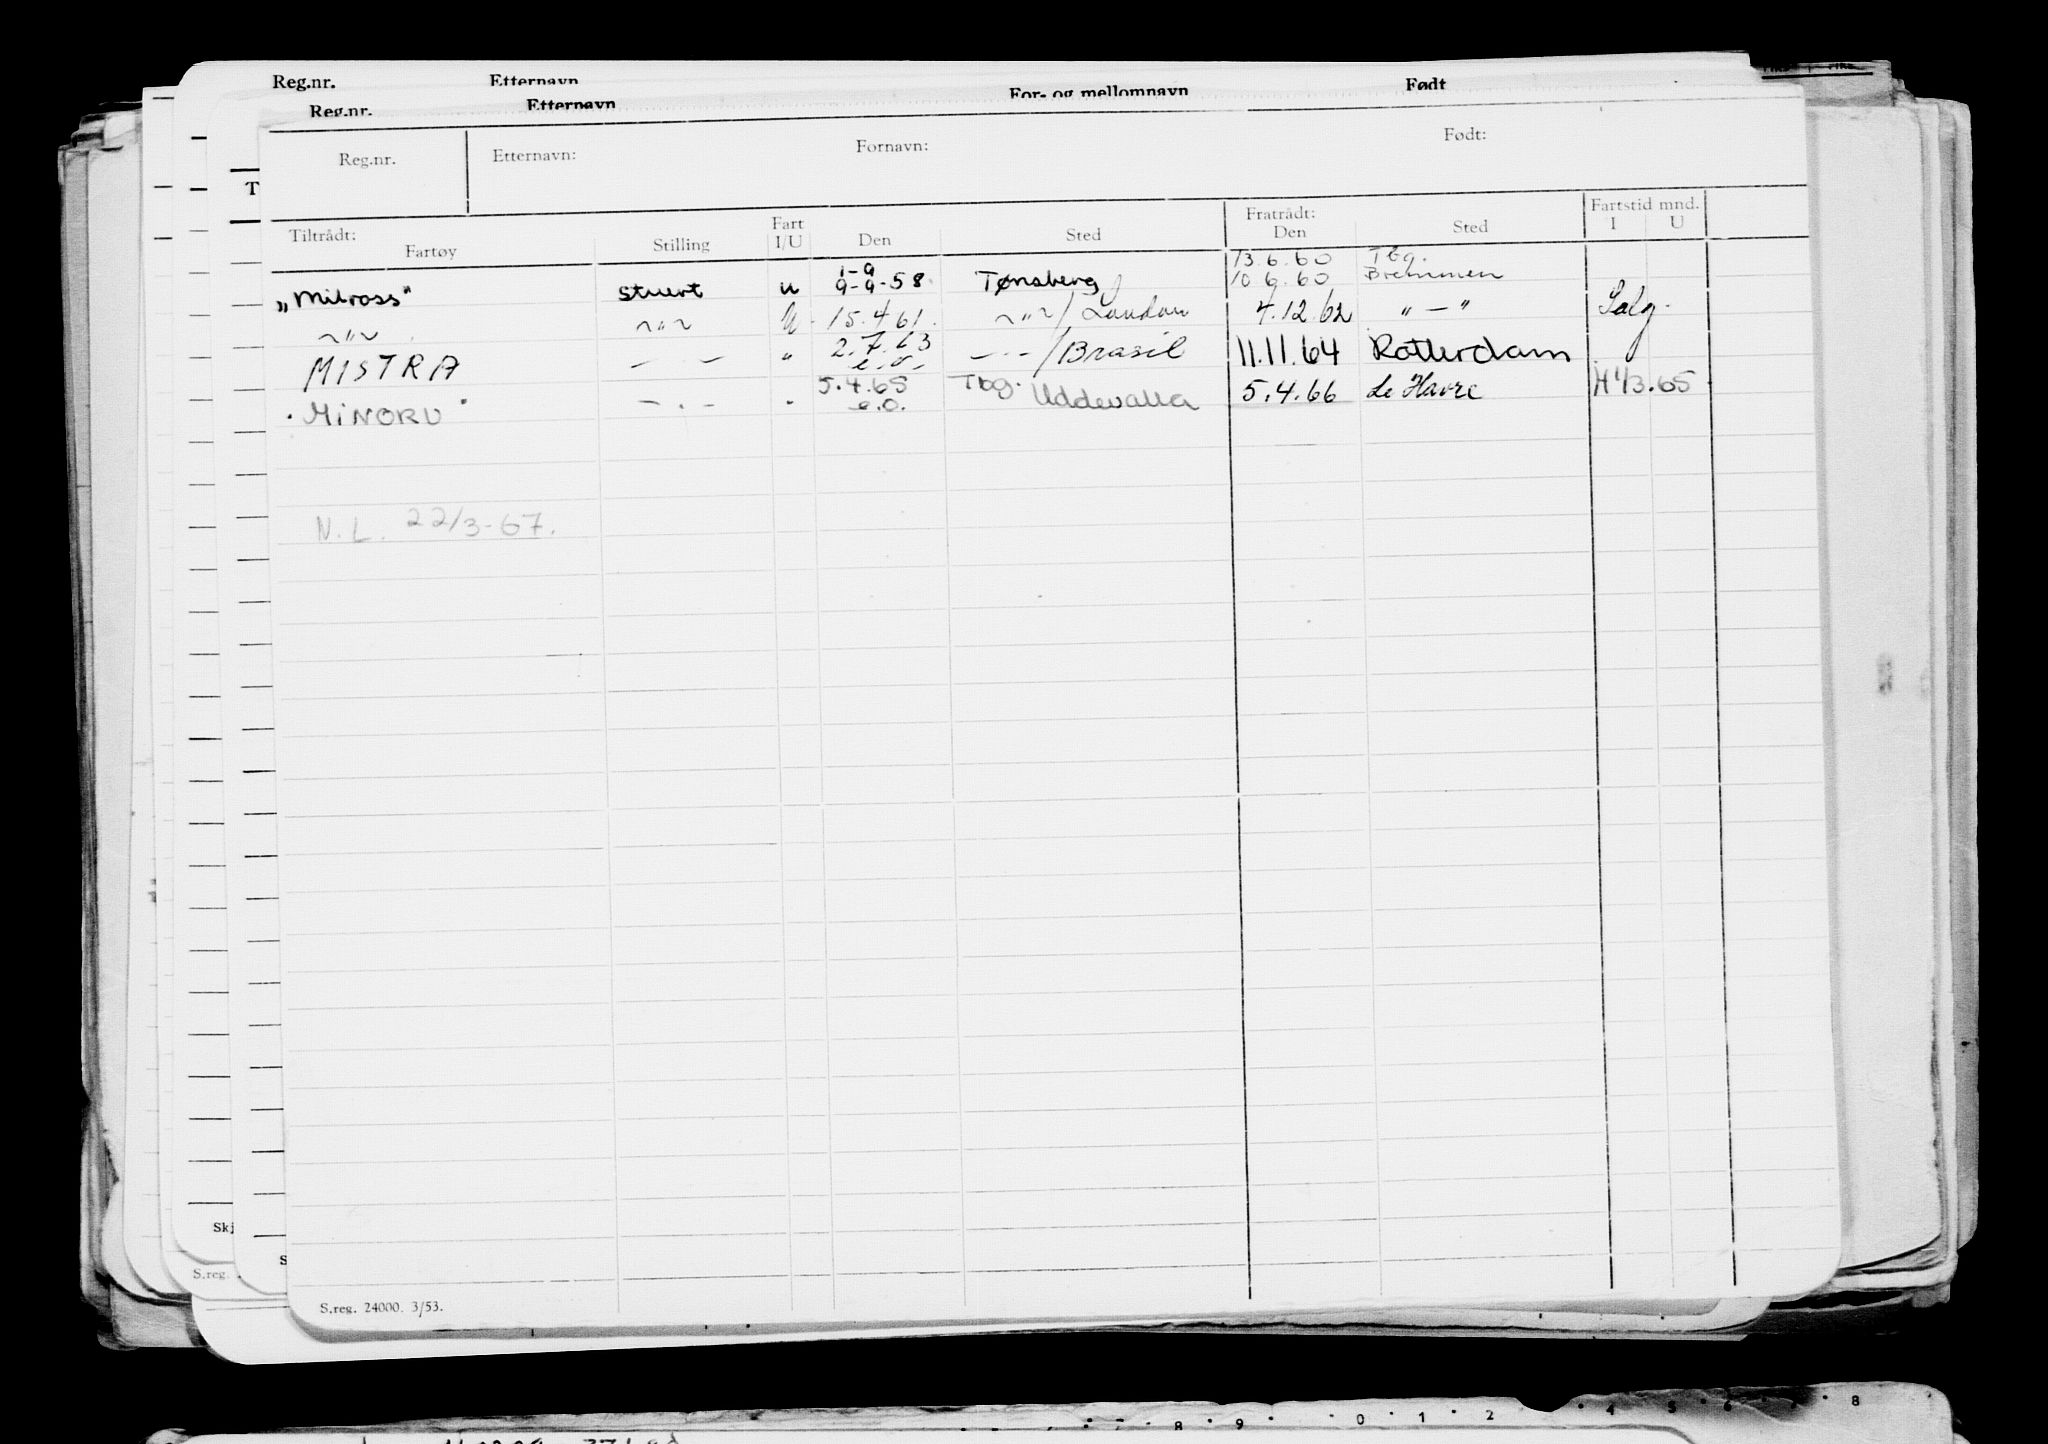 Reg.nr. Etternavn
Reg.nr. Etternavn For- og mellomnavn Født
Reg.nr. Etternavn: Fornavn: Født:
Tiltrådt: Fartøy Stilling Fart I/U Den Sted Fratrådt: Den Sted Fartstid mnd. I U
1-9 13.6.60 Tbg.
„Milross" Stuert u 9-9-58. Tønsberg 10 6.60 Bremmen
~"~ ~"~ U 15.4.61. ~"~/London 4.12.62 " — " Salg.
2.7.63
MISTRA — — " e.o. — · — /Brasil 11.11.64 Rotterdam
5.4.65 Tbg.
"MINORU" — . — " e.o. Uddevalla 5.4.66 Le Havre H 1/3.65
N.L. 22/3-67.
T
Skj
S
S.reg.
S.reg. 24000. 3/53.
7 8 9 0 1 2 4 5 6 7 8